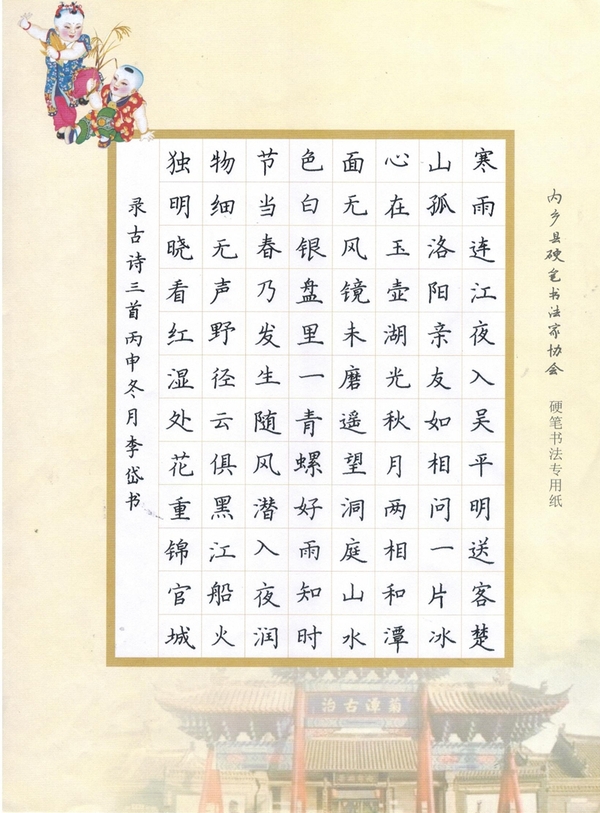 内乡县硬笔书法家协会 硬笔书法专用纸
寒雨连江夜入吴平明送客楚
山孤洛阳亲友如相问一片冰
心在玉壶湖光秋月两相和潭
面无风镜未磨遥望洞庭山水
色白银盘里一青螺好雨知时
节当春乃发生随风潜入夜润
物细无声野径云俱黑江船火
独明晓看红湿处花重锦官城
录古诗三首丙申冬月李岱书
菊潭古治